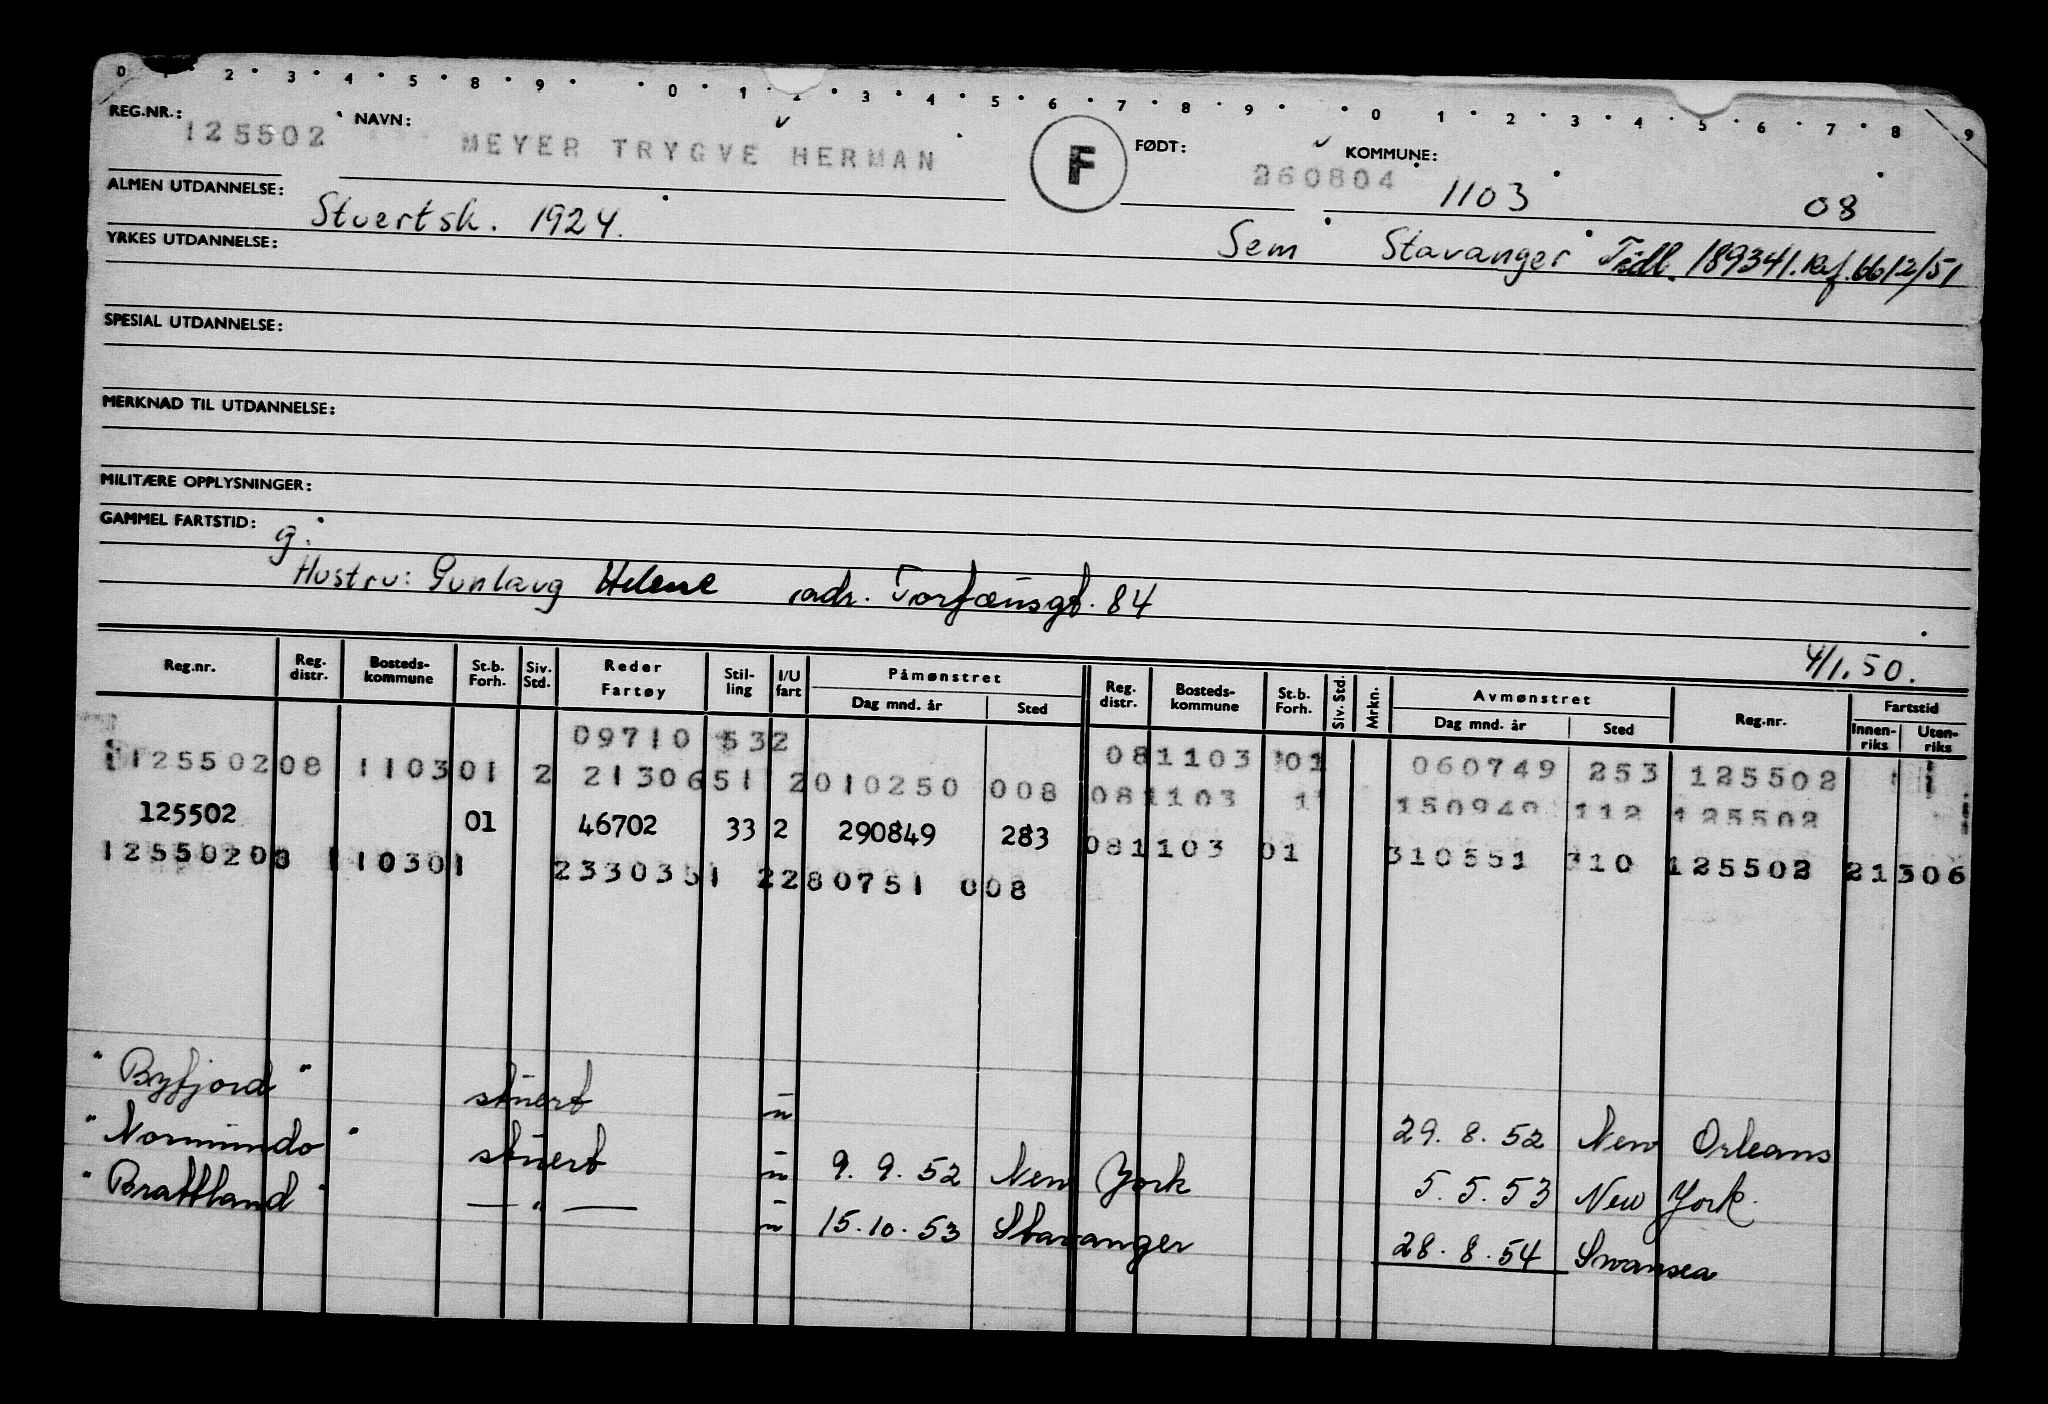 0 1 2 3 4 5 8 9 0 1 2 3 4 5 6 7 8 9 0 1 2 3 4 5 6 7 8 9
REG.NR.: 125502 NAVN: MEYER TRYGVE HERMAN F FØDT: 260804 KOMMUNE: 1103 08
ALMEN UTDANNELSE: Stuertsk. 1924. Sem Stavanger Tidl. 189341. Ref. 6612/51
YRKES UTDANNELSE:
SPESIAL UTDANNELSE:
MERKNAD TIL UTDANNELSE:
MILITÆRE OPPLYSNINGER:
GAMMEL FARTSTID:
g.
Hustru: Gunlaug Helene adr. Torfæusgt. 84
4/1.50.
Reg.nr. Reg. distr. Bosteds-kommune St.b. Forh. Siv. Std. Reder Fartøy Stil-ling I/U fart Påmønstret Dag mnd. år Sted Reg. distr. Bosteds-kommune St.b. Forh. Siv. Std. Mrkn. Avmønstret Dag mnd. år Sted Reg.nr. Fartstid Innen-riks Uten-riks
09710 532 081103 01 060749 253 125502
125502 08 1103 01 2 21306 51 2 010250 008 081103 1 150949 112 125502
125502 01 46702 33 2 290849 283 081103 01 310551 310 125502 21306
125502 08 1103 01 23303 51 2 280751 008
"Byfjord" stuert u 29.8.52 New Orleans
"Normundo" stuert u 9.9.52 New York 5.5.53 New York.
"Brattland" — " — u 15.10.53 Stavanger 28.8.54 Swansea